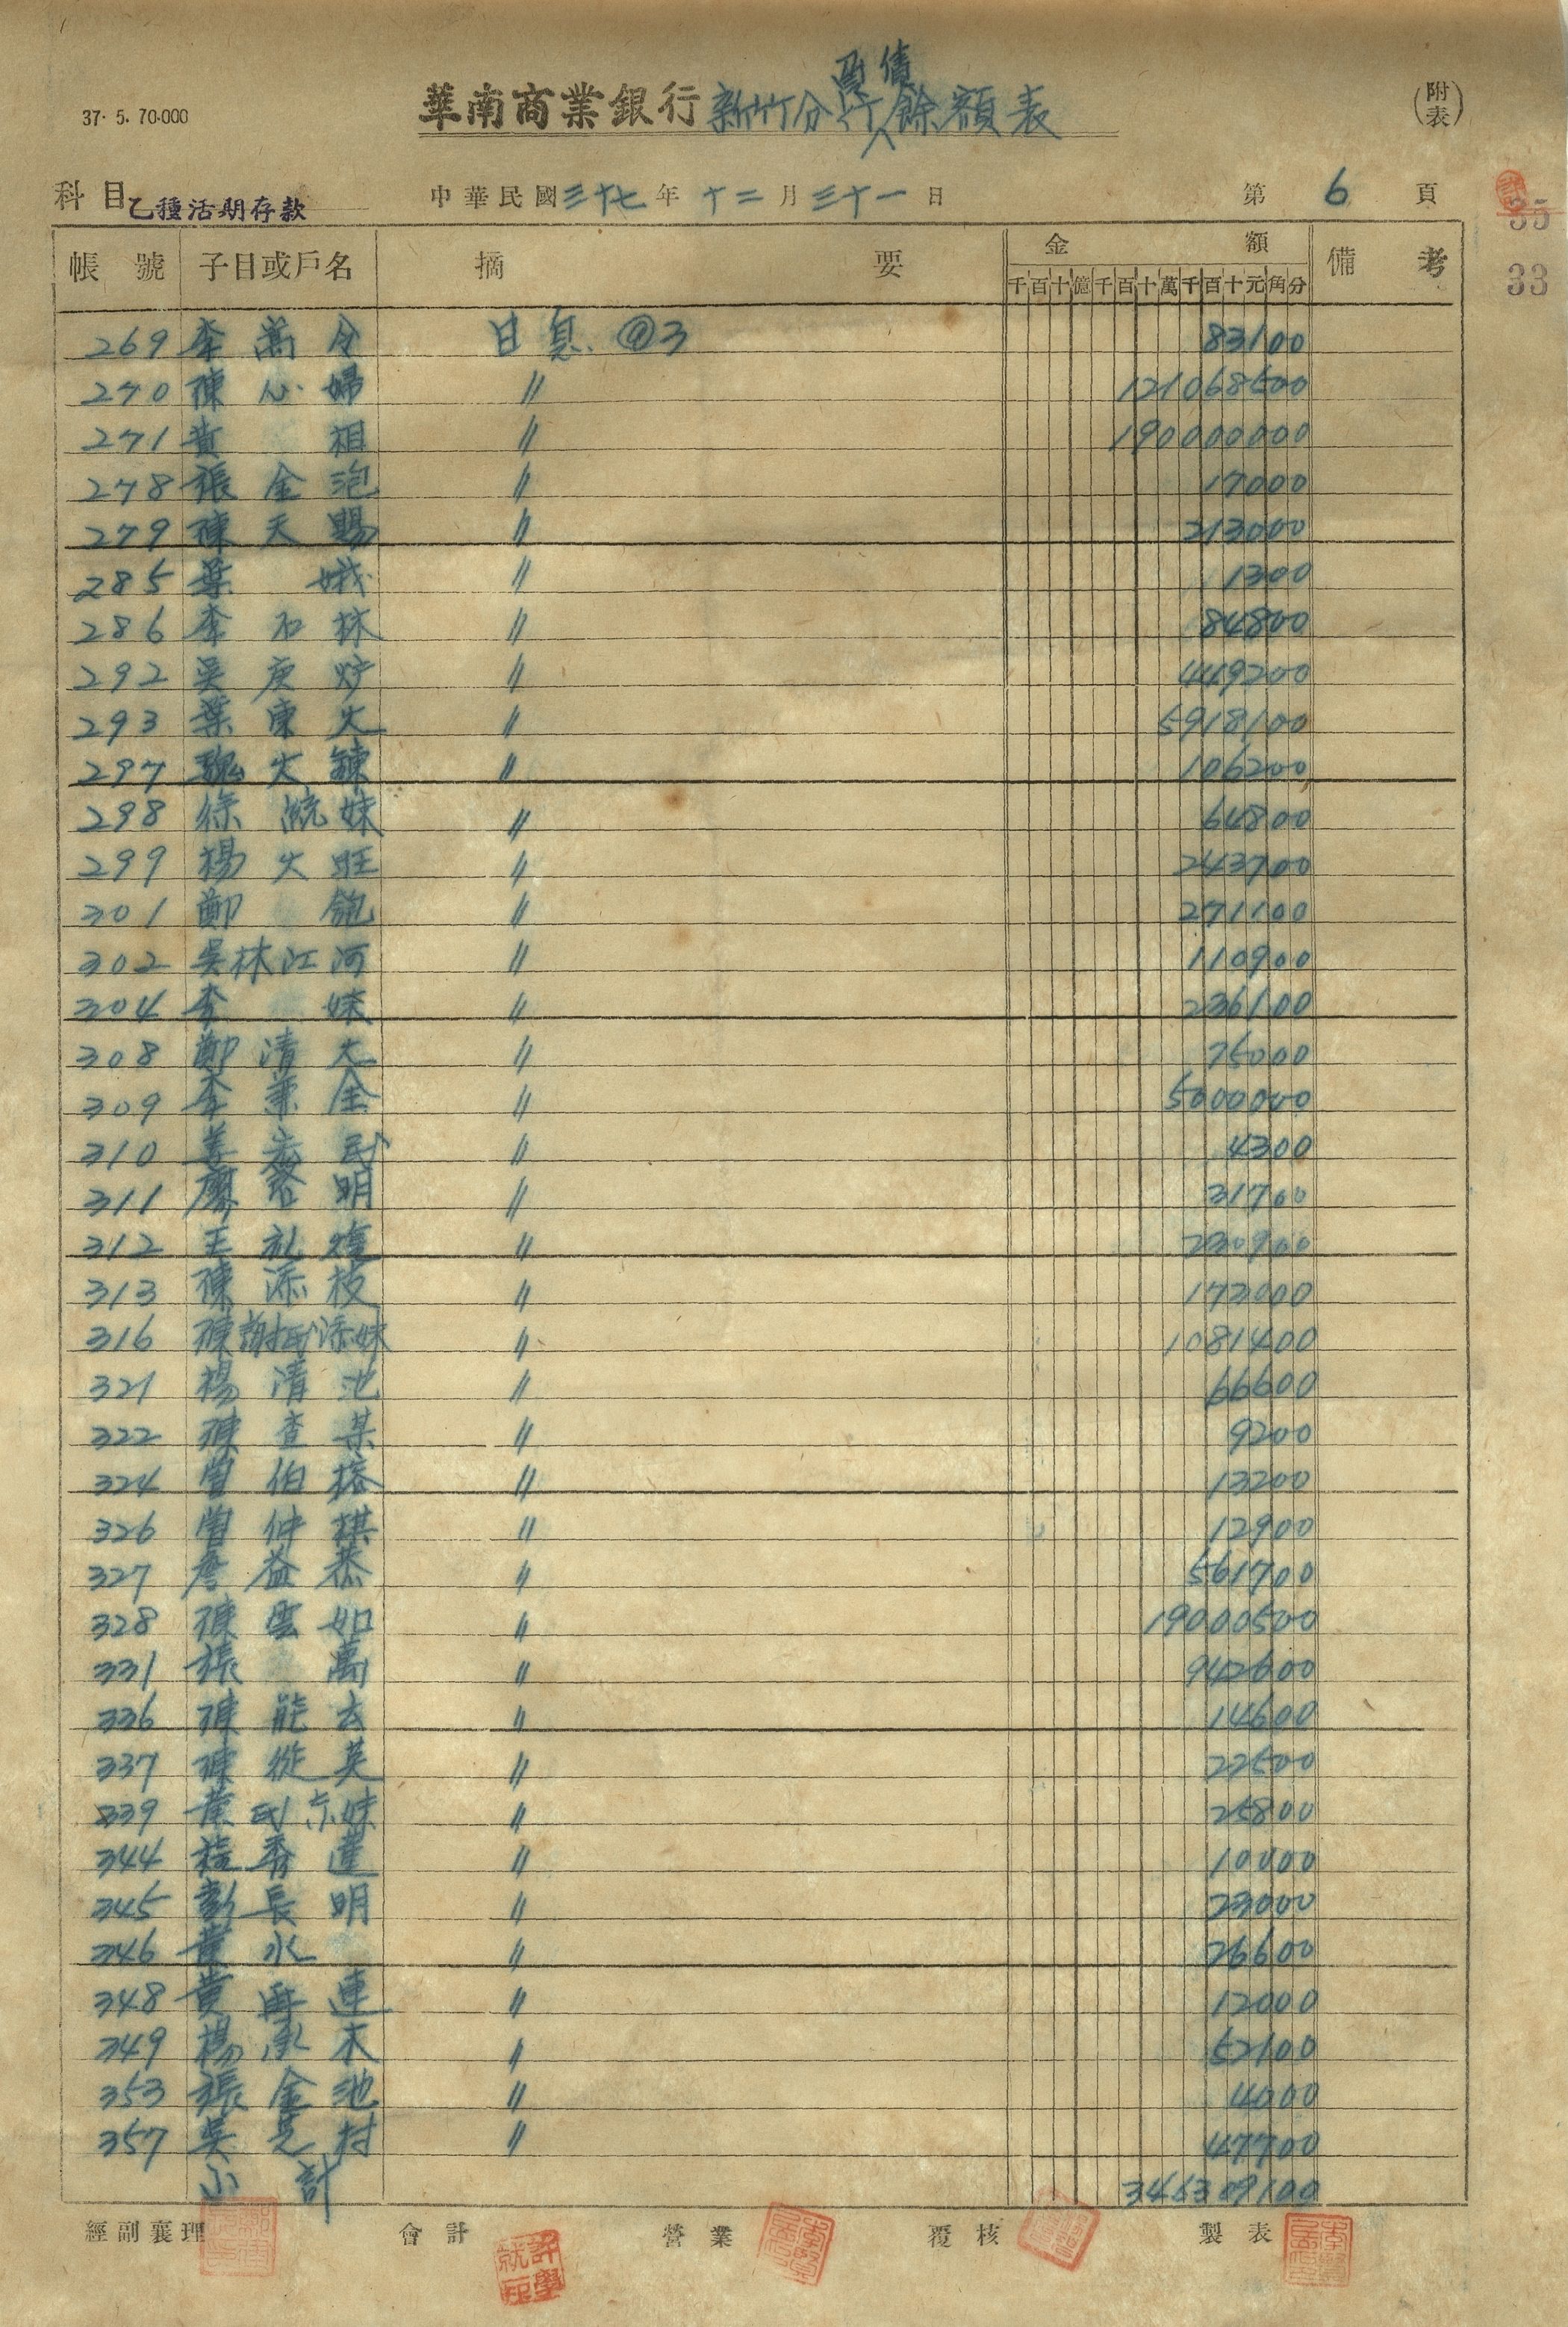 舊債
華南商業銀行新竹分行餘額表
(附表)
37. 5. 70.000
科目 乙種活期存款 中華民國三十七年十二月三十一日 第 6 頁
35
33
帳號 子目或戶名 摘要 金額 備考
千百十億千百十萬千百十元角分
269 李萬全 日息 @3 83100
270 陳心婦 〃 121068500
271 黃祖 〃 190000000
278 張金泡 〃 17000
279 陳天賜 〃 213000
285 葉娥 〃 1300
286 李石林 〃 84800
292 吳庚炉 〃 449200
293 葉東火 〃 5918100
297 魏火鍊 〃 106200
298 徐統妹 〃 64800
299 楊火旺 〃 243700
301 鄭飽 〃 271100
302 吳林江河 〃 110900
304 李妹 〃 236100
308 鄭清火 〃 75000
309 李業金 〃 5000000
310 姜氏 〃 4300
311 廖啓明 〃 31700
312 王礼煌 〃 230900
313 陳添枝 〃 172000
316 陳謝氏添妹 〃 1081400
321 楊清池 〃 66600
322 陳查某 〃 9200
324 曾伯榕 〃 13200
326 曾仲棋 〃 12900
327 詹益恭 〃 561700
328 陳雲如 〃 19000500
331 張萬 〃 942600
336 陳能去 〃 14600
337 陳從英 〃 22500
339 黃氏京妹 〃 25800
344 秀蓮 〃 10000
345 彭長明 〃 23000
346 黃水 〃 26600
348 黃再連 〃 12000
349 楊承木 〃 52100
353 張金池 〃 4000
357 吳芝村 〃 47700
小計 346309100
經副襄理 會計 營業 覆核 製表
許學就印